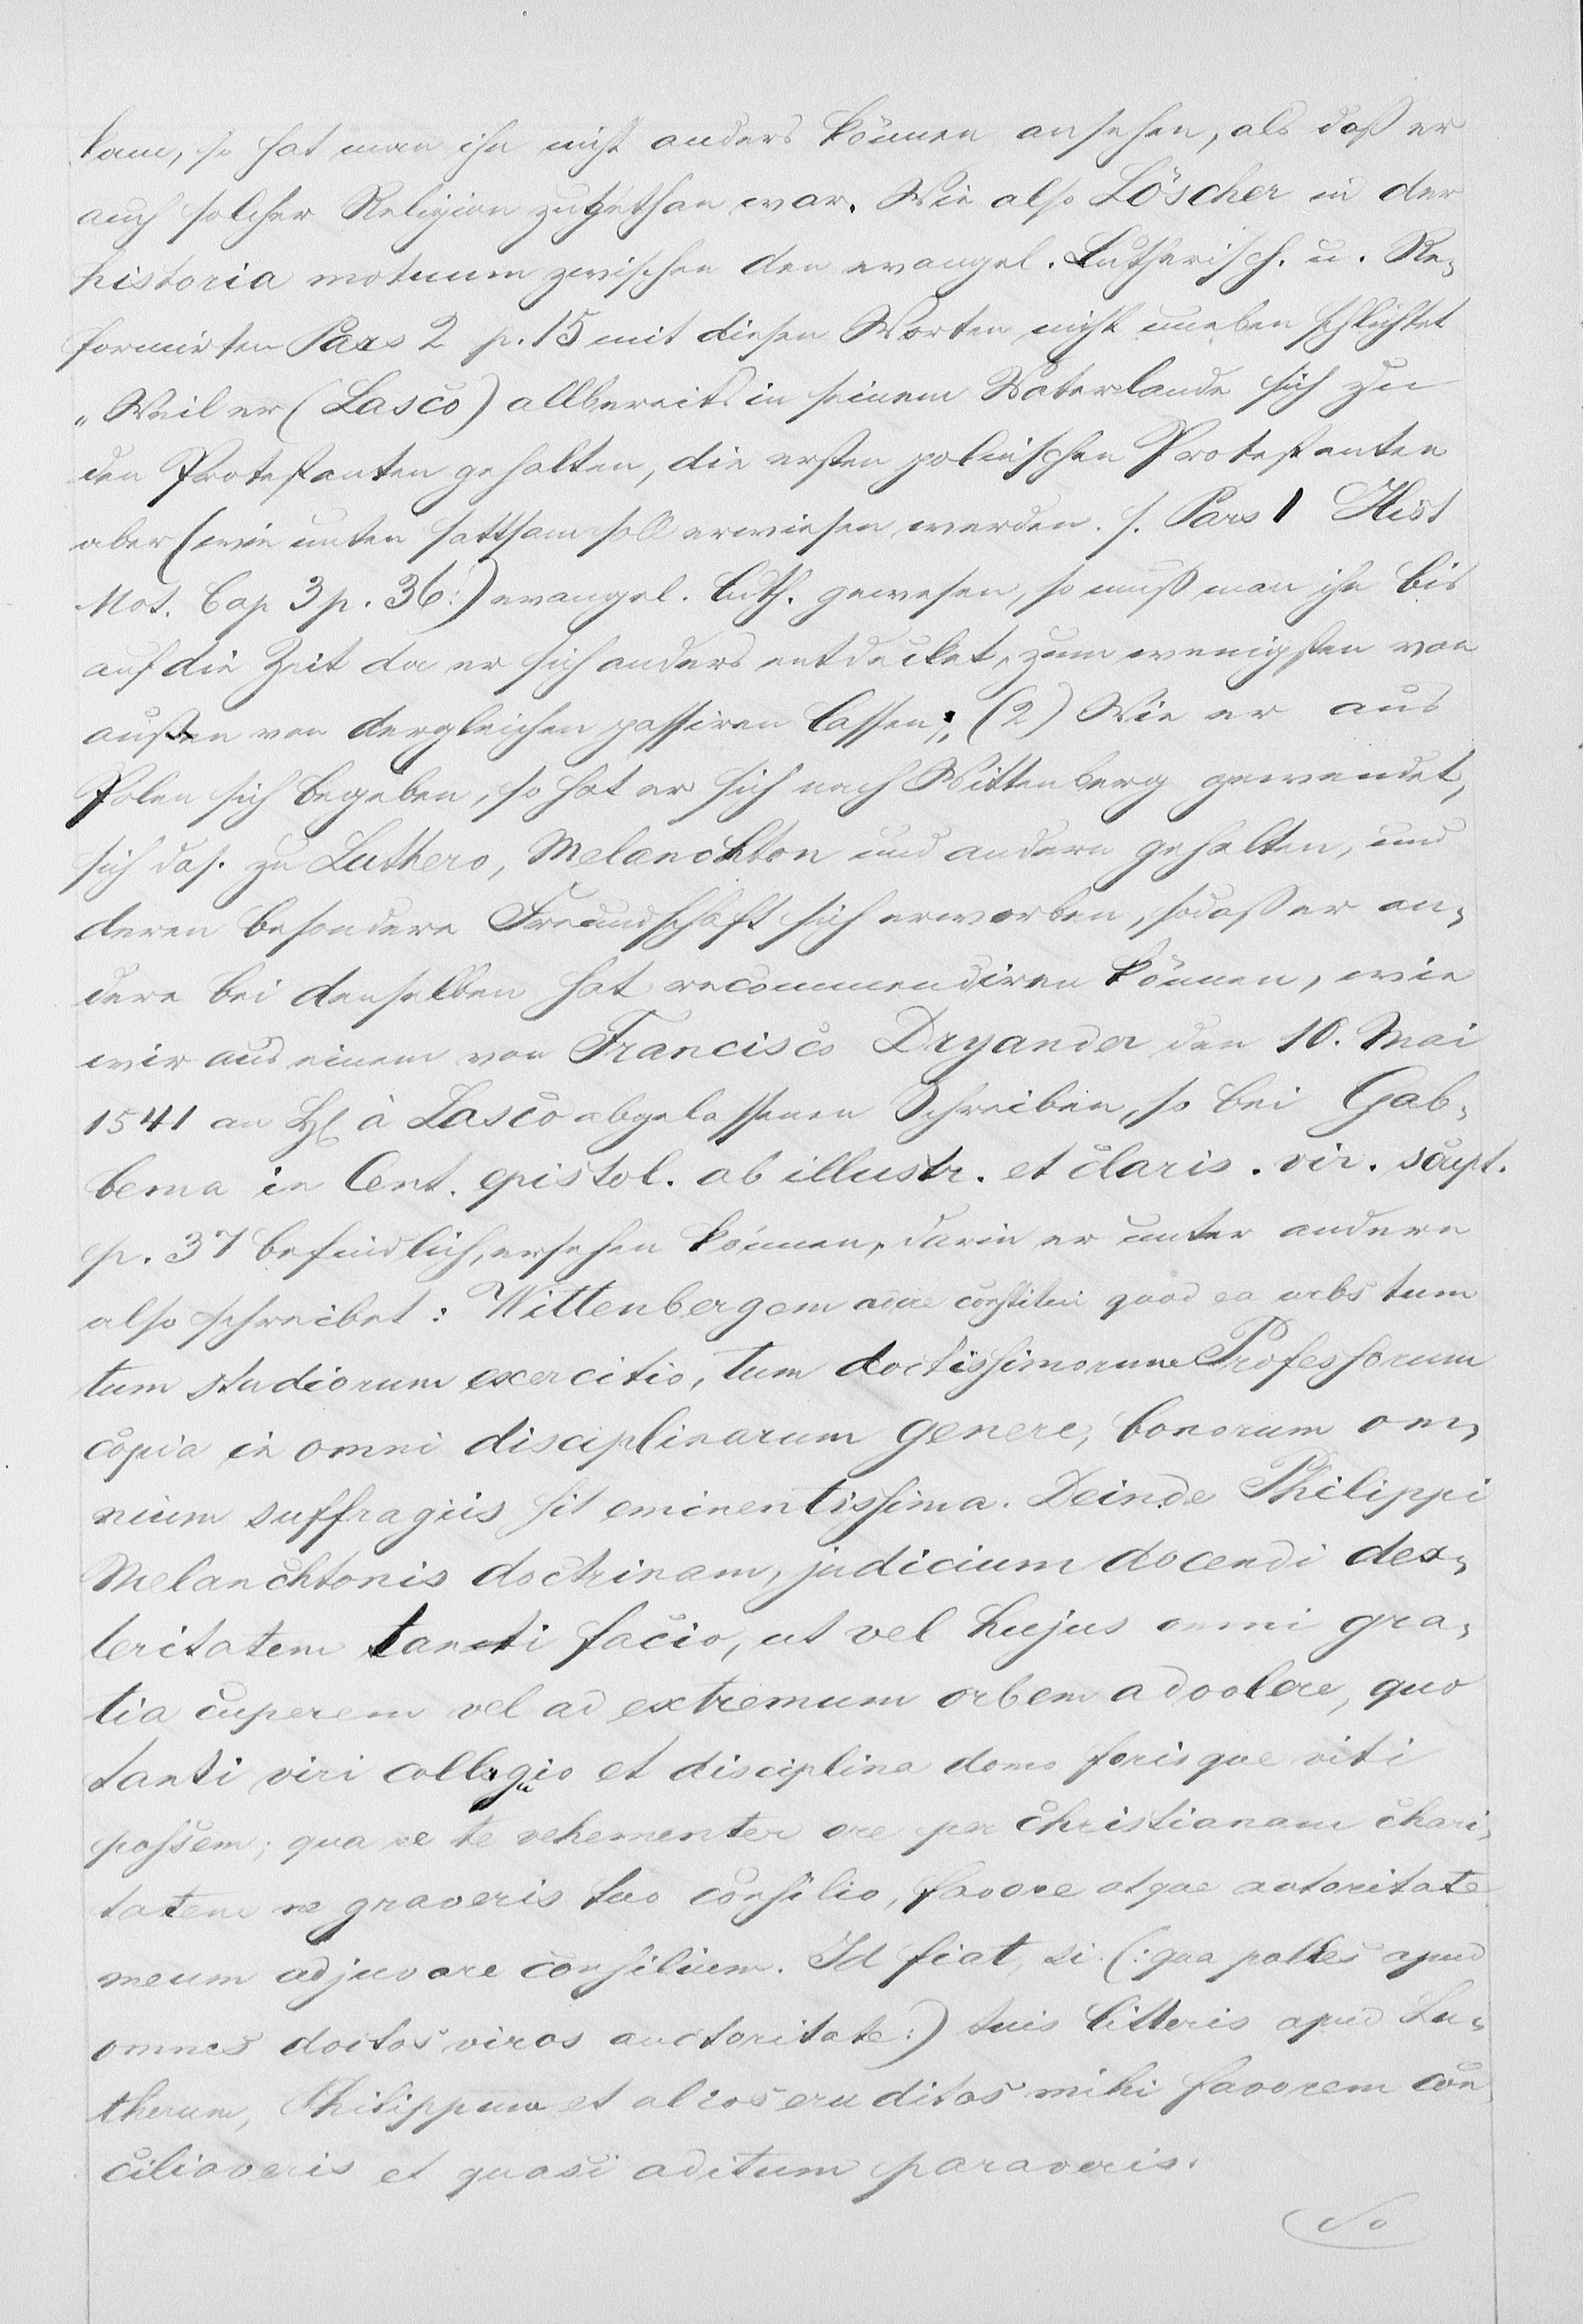 kam, so hat man ihn nicht anders können ansehen, als daß er
auch solcher Religion zugethan war. Wie also Löscher in der
historia motuum zwischen den evangel. Lutherisch. u. Re-
formirten Pars 2 p. 15 mit diesen Worten nicht uneben schlichtet
„Weil er (Lasco) allbereits in seinem Vaterlande sich zu
den Protestanten gehalten, die ersten polnischen Protestanten
aber (wie unten sattsam soll erwiesen werden. s. Pars 1 Hist
Mot. Cap 3 p. 36:) evangel. luth. gewesen, so muß man ihn bis
auf die Zeit da er sich anders entdecket, zum wenigsten von
außen vor dergleichen passiren lassen;„ (2) Wie er aus
Polen sich begeben, so hat er sich nach Wittenberg gewendet,
sich das. zu Luthero, Melanchton und andern gehalten, und
deren besondere Freundschaft sich erworben, sodaß er an-
dere bei denselben hat recommendiren können, wie
wir aus einem von Francisco Dryander den 10. Mai
1541 an H. à Lasco abgelassenen Schreiben, so bei Gab-
bema in Cent. epistol. ab illustr. et claris. vir. script.
p. 37 befindlich, ersehen können, darin er unter andern
also schreibet: Wittenbergam adire constitui quod ea urbs tum
tum studiorum exercitio, tum doctissimorum Professorum
copia in omni disciplinarum genere, bonorum om-
nium suffragiis sit eminentissima. Deinde Philippi
Melanchtonis doctrinam, judicium docendi dex-
teritatem tanti facio, ut vel hujus omni gra-
tia cuperem vel ad extremum orbem advolare, quo
tanti viri colloquio et disciplina domo forisque uti
possem; qua re te vehementer oro per Christianam chari-
tatem ne graveris tuo consilio, favore atque autoritate
meum adjuvare consilium. Id fiat, si (:qua polles apud
omnes doctos viros auctoritate:) tuis litteris apud Lu-
therum, Philippum et alios eruditos mihi favorem con-
ciliaveris et quasi aditum paraveris.
So